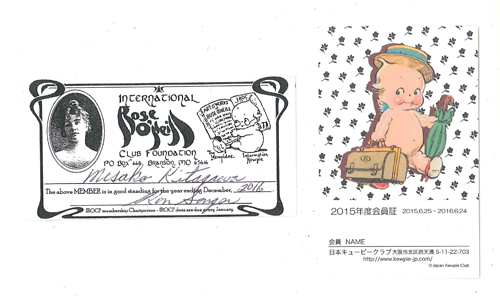 INTERNATIONAL
Rose O'Neill
CLUB FOUNDATION
PO BOX 668, BRANSON, MO 65616
The Kewpidee
Information Kewpie
Misako Kitagawa
The above MEMBER is in good standing for the year ending December, 2016.
IROCF membership Chairperson - IROCF dues are due every January.
2015年度会員証 2015.6.25 - 2016.6.24
会員 NAME
日本キューピークラブ 大阪市北区西天満 5-11-22-703
http://www.kewpie-jp.com/
© Japan Kewpie Club